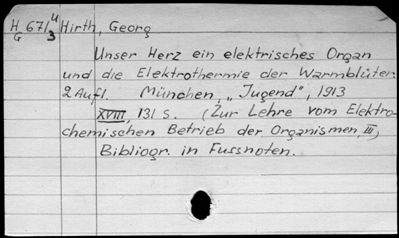 H 67/3 4 Hirth, Georg
G
Unser Herz ein elektrisches Organ
und die Elektrothermie der Warmblüter.
2 Aufl. München, „Jugend", 1913
XVIII, 131 S. (Zur Lehre vom Elektro-
chemischen Betrieb der Organismen, III)
Bibliogr. in Fussnoten.